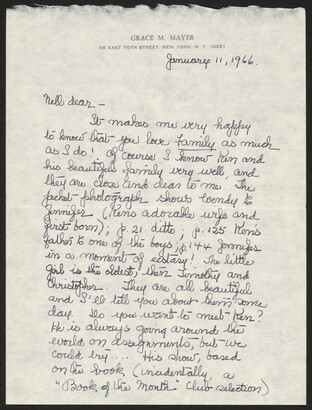 GRACE M. MAYER
35 EAST 76TH STREET, NEW YORK, N. Y. 10021
January 11, 1966.
Nell dear –
It makes me very happy
to know that you love family as much
as I do! Of course I know Ken and
his beautiful family very well, and
they are close and dear to me. The
jacket photograph shows Wendy to
Jennifer (Ken's adorable wife and
first born); p. 21 ditto; p. 125 Ken's
father to one of the boys; p. 144 Jennifer
in a moment of ecstasy! The little
girl is the oldest; then Timothy and
Christopher. They are all beautiful
and I'll tell you about them some
day. Do you want to meet Ken?
He is always going around the
world on assignments, but we
could try.... His show, based
on the book (incidentally, a
"Book of the Month" Club selection)